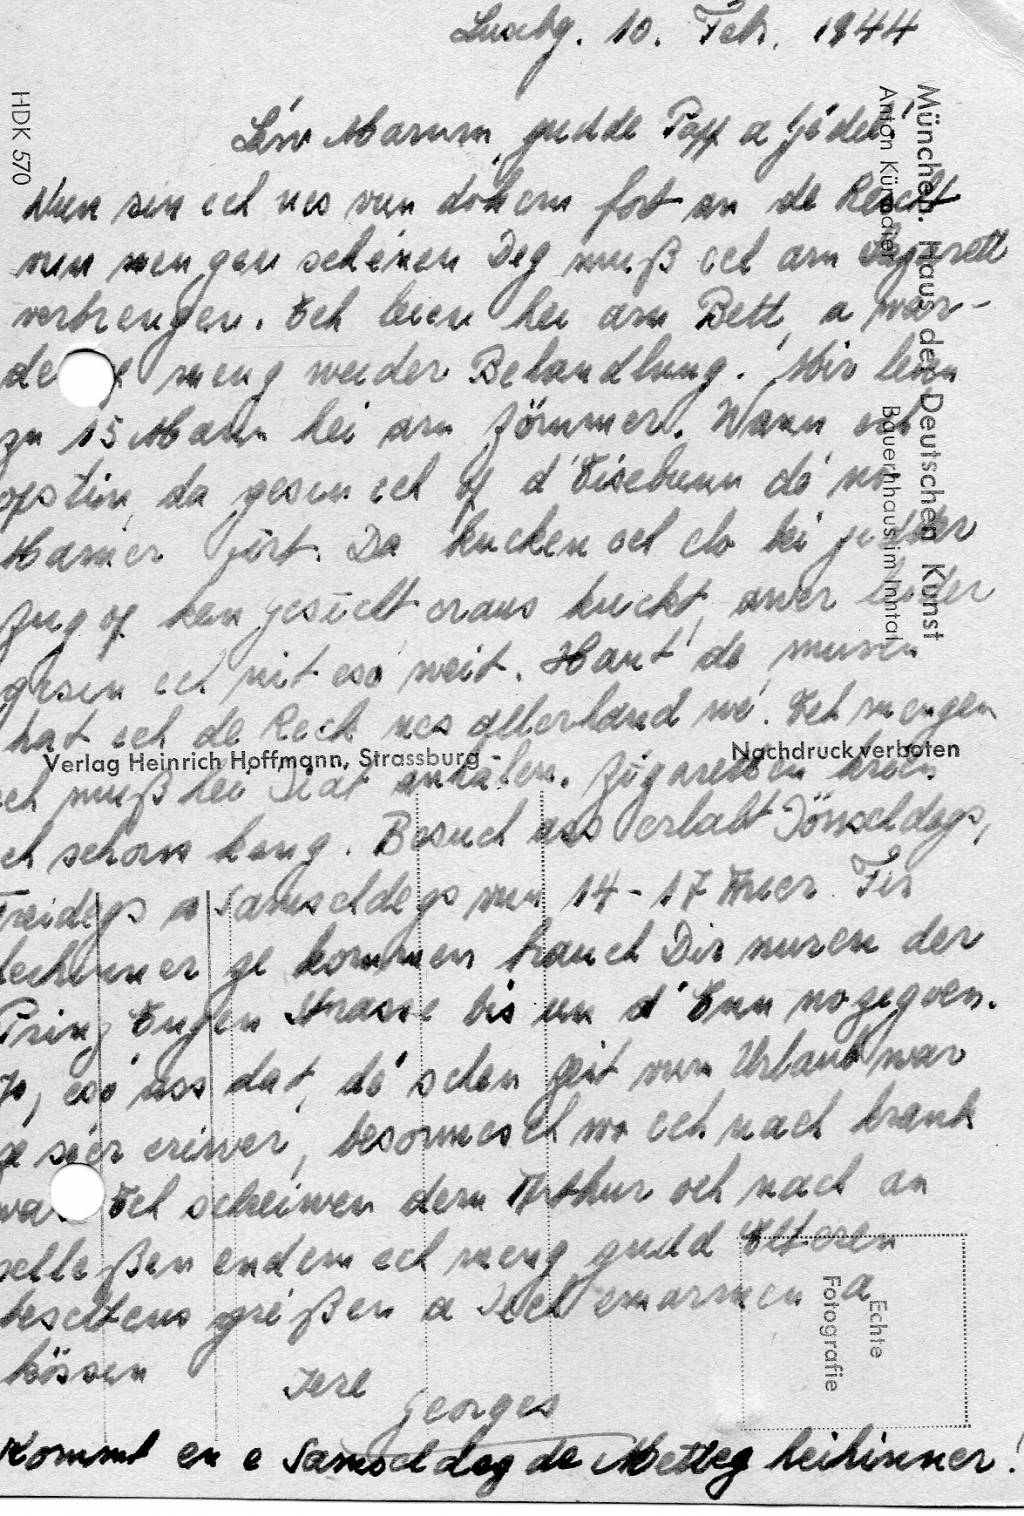 Luxbg. 10. Febr. 1944
Léw Mamm, gudde Papp a Jé
Nun sin ech nes vun dohem fort an de Rescht
vun mengen schéinen Deg muß ech am Lazarett
verbrengen. Ech leien hei am Bett, a war-
de meng weider Behandlung. Mir leien
zu 15 Mann hei am Zömmer. Wann ech
opstin, da gesin ech of d'Eisebunn dé no
Mamer fiert. Da kucken ech elo bei jidder
Zug of ken Gesicht eraus kuckt, awer leider
gesin ech nit eso weit. Haut de muren
hat ech de Reck nes allerhand wé. Ech mengen
ech muß hei Diät anhalen. Zigaretten kréien
ech schons keng. Besuch ass erlabt Dönschdegs,
Freidegs a Samschdegs vun 14-17 Auer. Fir
heihinner ze kommen brauch Dir nuren der
Prinz Eugen Strasse bis un d'Enn nozegoen.
Jo, eso ass dat, dé schén Zeit vum Urlaub war
ze séier eriwer, besonnesch wo ech nach krank
war. Ech schreiwen dem Arthur och nach an
schleßen endem ech meng gudd Elteren
beschtens gréßen a Iech emarmen a
kössen
Iere
Georges
Kommt en e Samschdeg de Metteg heihinner!
HDK 570
München. Haus der Deutschen Kunst
Bauernhaus im Inntal
Verlag Heinrich Hoffmann, Strassburg
Nachdruck verboten
Echte
Fotografie